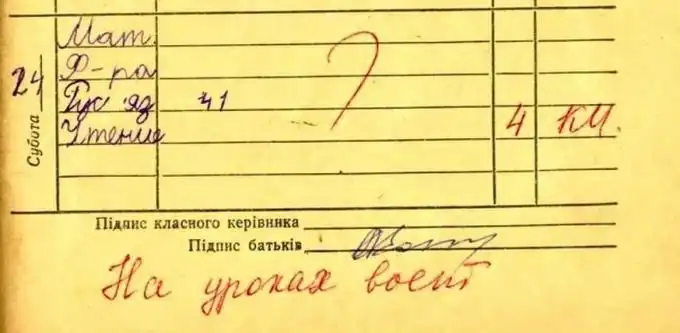 Мат.
24 Ф-ра
Рус яз 41
?
Субота Чтение 4 КМ.
Підпис класного керівника
Підпис батьків
На уроках воет